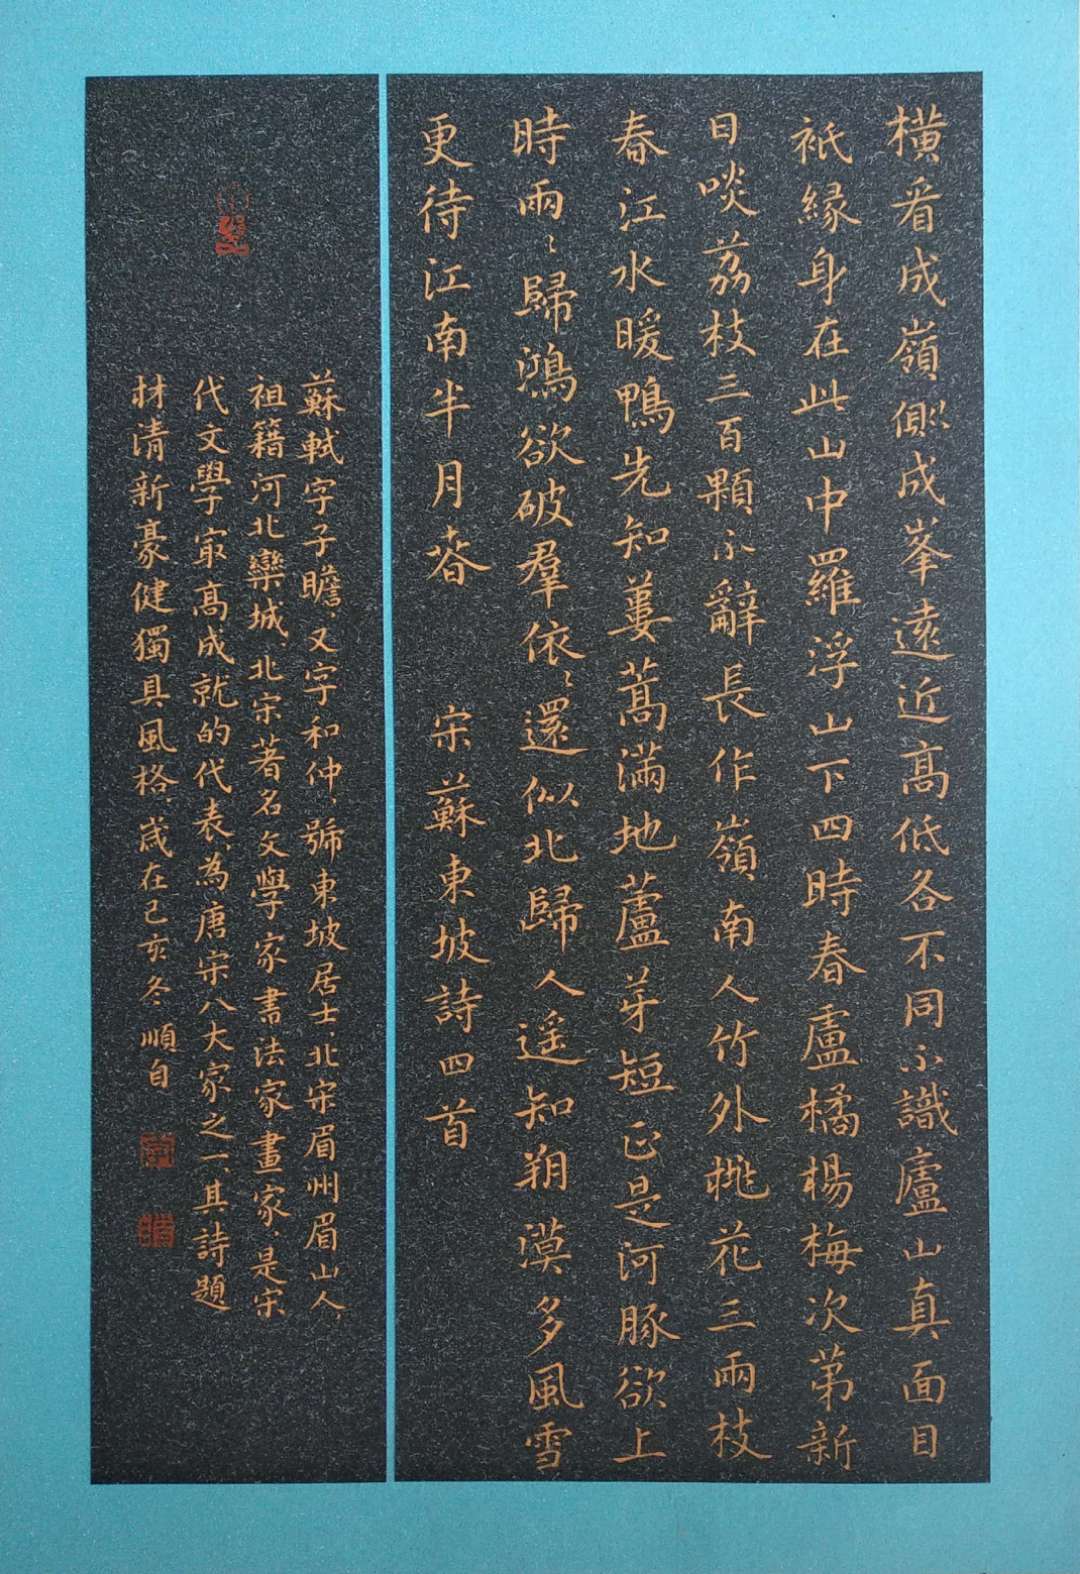 橫看成嶺側成峯遠近高低各不同不識廬山真面目
衹緣身在此山中羅浮山下四時春盧橘楊梅次第新
日啖荔枝三百顆不辭長作嶺南人竹外桃花三兩枝
春江水暖鴨先知蔞蒿滿地蘆芽短正是河豚欲上
時兩〻歸鴻欲破羣依〻還似北歸人遥知朔漠多風雪
更待江南半月春 宋蘇東坡詩四首
蘇軾字子瞻、又字和仲、號東坡居士、北宋眉州眉山人、
祖籍河北欒城、北宋著名文學家書法家畫家、是宋
代文學最高成就的代表、為唐宋八大家之一、其詩題
材清新豪健獨具風格、歲在己亥冬順自